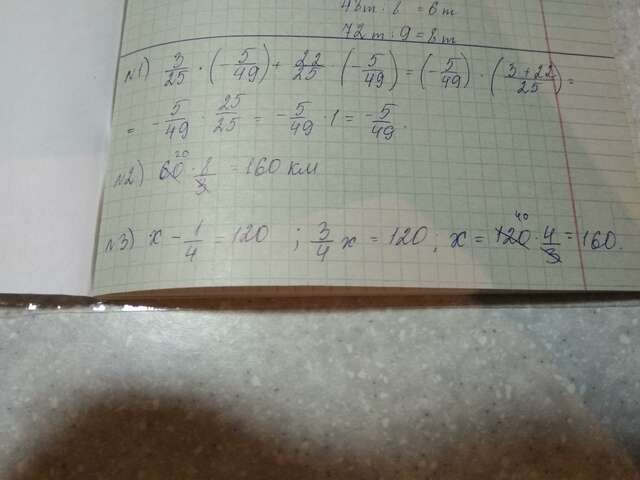 48т : 8 = 6т
72т : 9 = 8т
№1) 3/25 · (-5/49) + 22/25 · (-5/49) = (-5/49) · (3+22/25) =
= -5/49 · 25/25 = -5/49 · 1 = -5/49.
№2) 60 20 · 8/3 = 160 км
№3) x - 1/4 = 120 ; 3/4 x = 120 ; x = 120 40 · 4/3 = 160.